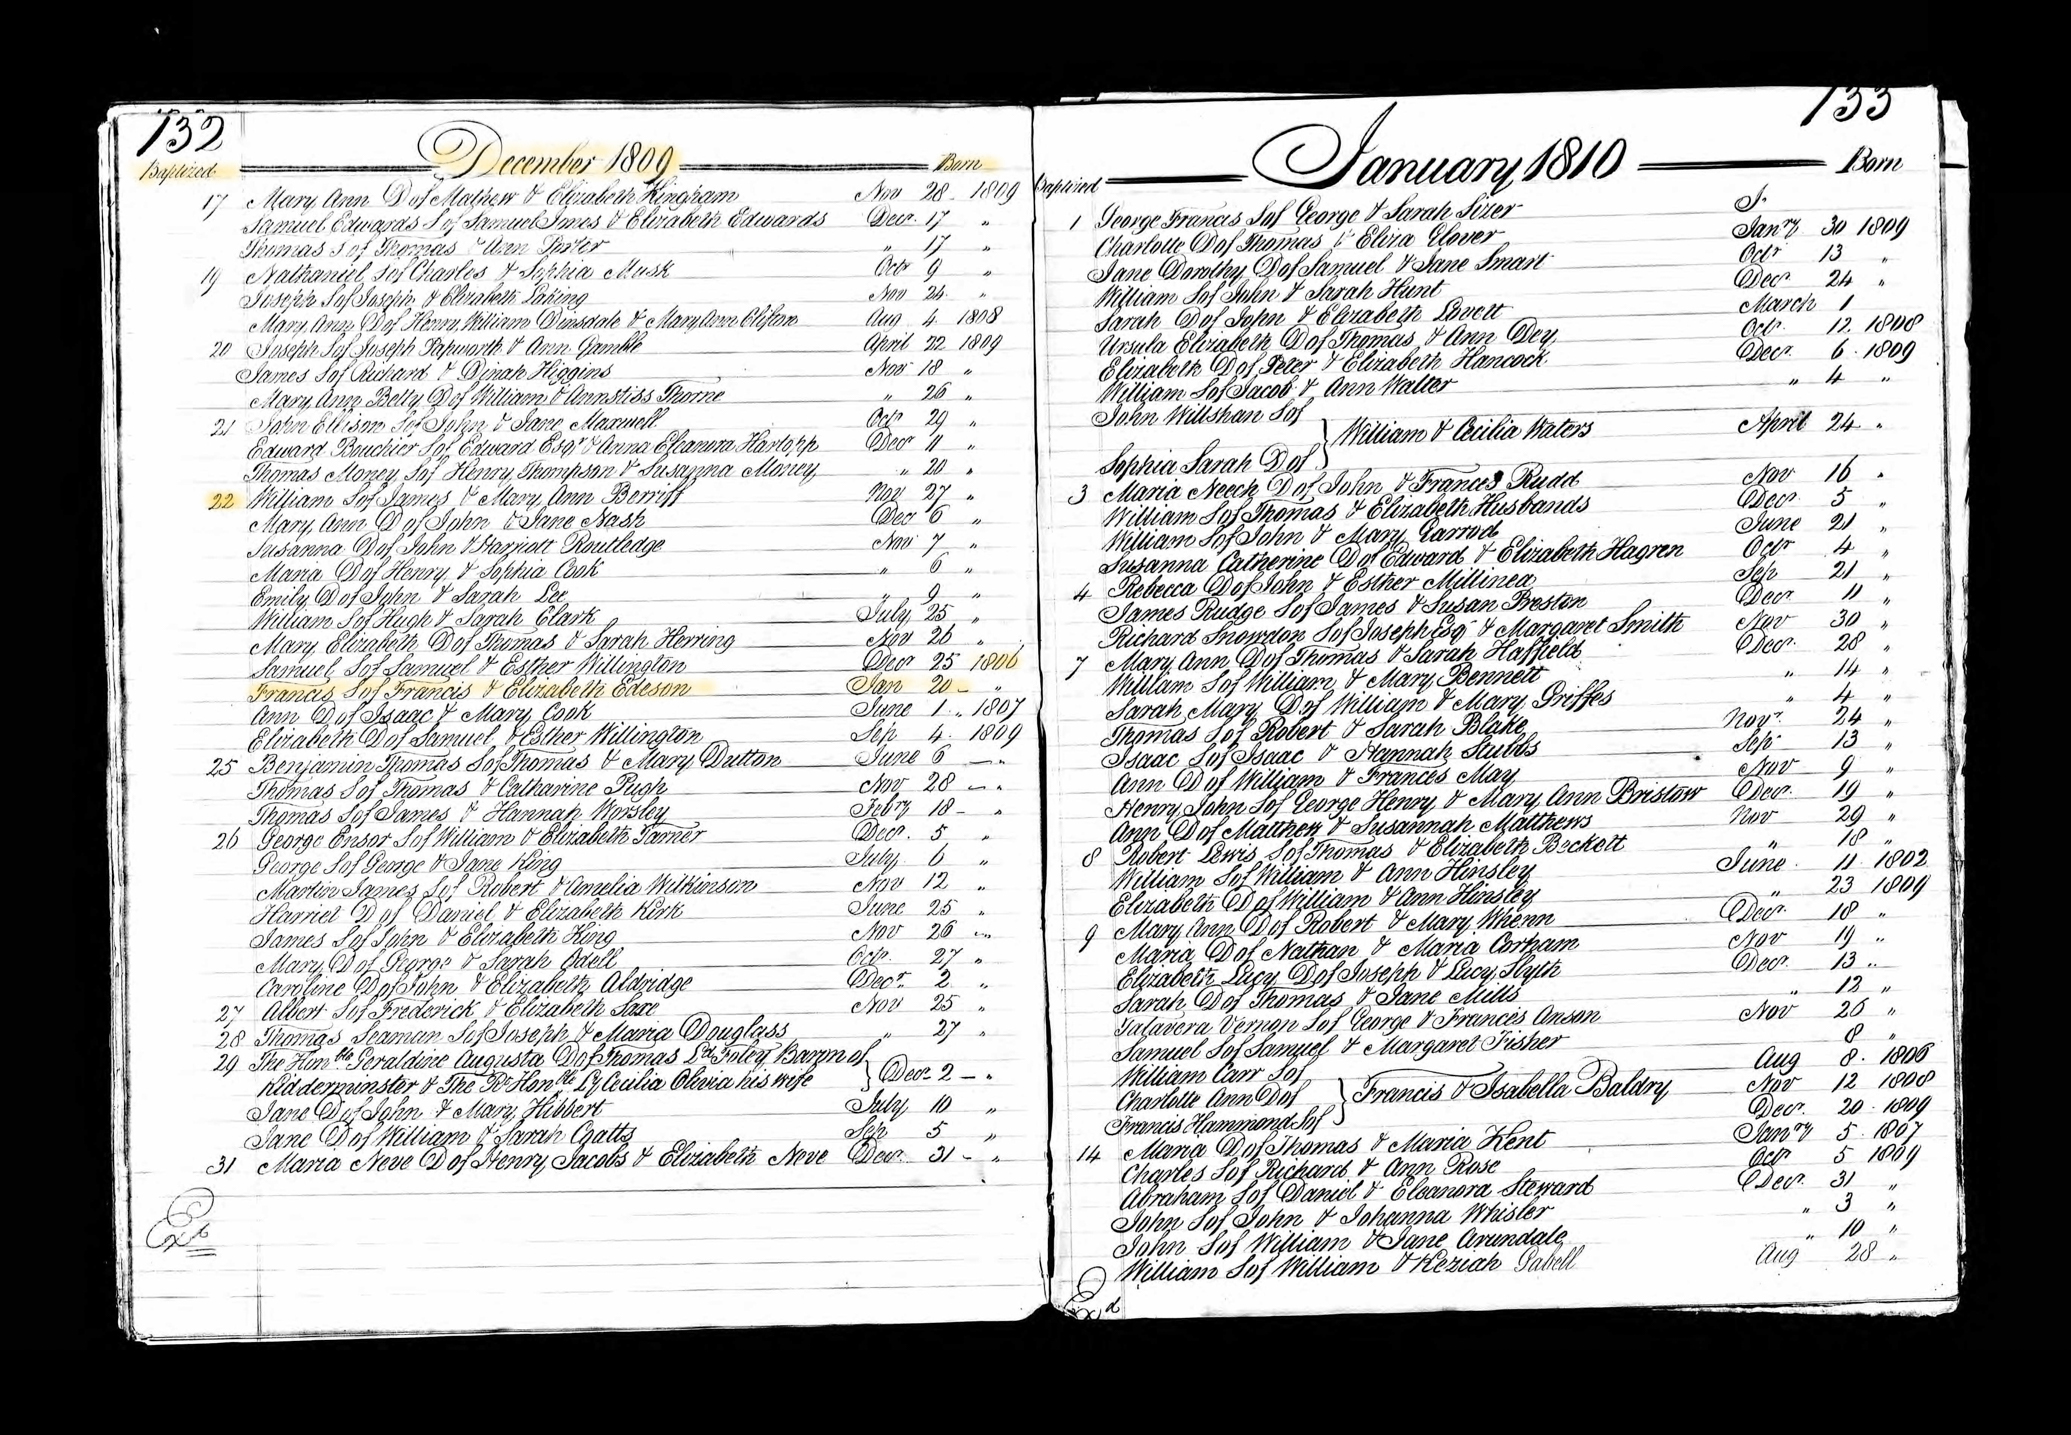 132
December 1809
Baptized Born
17 Mary Ann D of Mathew & Elizabeth Kingham Nov 28 - 1809
Samuel Edwards S of Samuel Imes & Elizabeth Edwards Decr. 17 "
Thomas S of Thomas & Ann Porter " 17 "
19 Nathaniel S of Charles & Sophia Musk Octr 9 "
Joseph S of Joseph & Elizabeth Laking Nov 24 "
Mary Ann D of Henry William Dinsdale & Mary Ann Clifton Aug 4 1808
20 Joseph S of Joseph Papworth & Ann Gamble April 22 1809
James S of Richard & Dinah Higgins Nov 18 "
Mary Ann Betty D of William & Annstiss Thorne " 26 "
21 John Ellison S of John & Jane Maxwell Octr 29 "
Edward Bouchier S of Edward Esqr. & Anna Eleanora Hartopp Decr 11 "
Thomas Money S of Henry Thompson & Susanna Money " 20 "
22 William S of James & Mary Ann Berriff Nov 27 "
Mary Ann D of John & Jane Nash Decr 6 "
Susanna D of John & Harriott Routledge Nov 7 "
Maria D of Henry & Sophia Cook " 6 "
Emily D of John & Sarah Lee " 9 "
William S of Hugh & Sarah Clark July 25 "
Mary Elizabeth D of Thomas & Sarah Herring Nov 26 "
Samuel S of Samuel & Esther Willington Decr 25 1806
Francis S of Francis & Elizabeth Edeson Jan 20 - "
Ann D of Isaac & Mary Cook June 1 " 1807
Elizabeth D of Samuel & Esther Willington Sep 4 - 1809
25 Benjamin Thomas S of Thomas & Mary Dutton June 6 - "
Thomas S of Thomas & Catharine Pugh Nov 28 - "
Thomas S of James & Hannah Worsley Febry 18 - "
26 George Ensor S of William & Elizabeth Turner Decr. 5 "
George S of George & Jane King July 6 "
Martin James S of Robert & Amelia Wilkinson Nov 12 "
Harriet D of Daniel & Elizabeth Kirk June 25 "
James S of John & Elizabeth King Nov 26 - "
Mary D of George & Sarah Odell Octr. 27 "
Caroline D of John & Elizabeth Aldridge Decr. 2 "
27 Albert S of Frederick & Elizabeth Saxe Nov 25 "
28 Thomas Seaman S of Joseph & Maria Douglass " 27 "
29 The Honble Geraldine Augusta D of Thomas Ld Foley Baron of
Kidderminster & The Rt Honble Ly Cecilia Olivia his wife Decr 2 - "
Jane D of John & Mary Hibbert July 10 "
Jane D of William & Sarah Gatts Sep 5 "
31 Maria Neve D of Henry Jacobs & Elizabeth Neve Decr. 31 - "
Exd
133
January 1810
Baptized Born
1 George Francis S of George & Sarah Sizer
Charlotte D of Thomas & Eliza Glover Janry 30 1809
Jane Dorothy D of Samuel & Jane Smart Octr 13 "
William S of John & Sarah Hunt Decr 24 "
Sarah D of John & Elizabeth Lovett March 1
Ursula Elizabeth D of Thomas & Ann Dey Octr. 12 1808
Elizabeth D of Peter & Elizabeth Hancock Decr. 6 - 1809
William S of Jacob & Ann Walter " 4 "
John Willshan S of
William & Cecilia Waters April 24 "
Sophia Sarah D of
3 Maria Neech D of John & Frances Rudd Nov 16 "
William S of Thomas & Elizabeth Husbands Decr 5 "
William S of John & Mary Garrod June 21 "
Susanna Catherine D of Edward & Elizabeth Hagren Octr 4 "
4 Rebecca D of John & Esther Millinea Sep 21 "
James Rudge S of James & Susan Preston Decr 11 "
Richard Snowdon S of Joseph Esqr & Margaret Smith Nov 30 "
7 Mary Ann D of Thomas & Sarah Haffield Decr. 28 "
William S of William & Mary Bennett " 14 "
Sarah Mary D of William & Mary Griffes " 4 "
Thomas S of Robert & Sarah Blake Novr. 24 "
Isaac S of Isaac & Hannah Stubbs Sep 13 "
Ann D of William & Frances May Nov 9 "
Henry John S of George Henry & Mary Ann Bristow Decr. 19 "
Ann D of Matthew & Susannah Matthews Nov 29 "
8 Robert Lewis S of Thomas & Elizabeth Beckett " 18 "
William S of William & Ann Hinsley June 11 1802
Elizabeth D of William & Ann Hinsley " 23 1809
9 Mary Ann D of Robert & Mary Whenn Decr. 18 "
Maria D of Nathan & Maria Corham Nov 19 "
Elizabeth Lucy D of Joseph & Lucy Slyth Decr. 13 "
Sarah D of Thomas & Jane Mills " 12 "
Talavera Vernon S of George & Frances Anson Nov 26 "
Samuel S of Samuel & Margaret Fisher 8 "
William Carr S of Aug 8 - 1806
Charlotte Ann D of Francis & Isabella Baldry Nov 12 1808
Francis Hammond S of Decr. 20 - 1809
14 Maria D of Thomas & Maria Kent Janry 5 - 1807
Charles S of Richard & Ann Rose Octr 5 1809
Abraham S of Daniel & Eleanora Steward Decr. 31 "
John S of John & Johanna Whisler " 3 "
John S of William & Jane Arundale " 10 "
William S of William & Keziah Gabell Aug 28 "
Exd